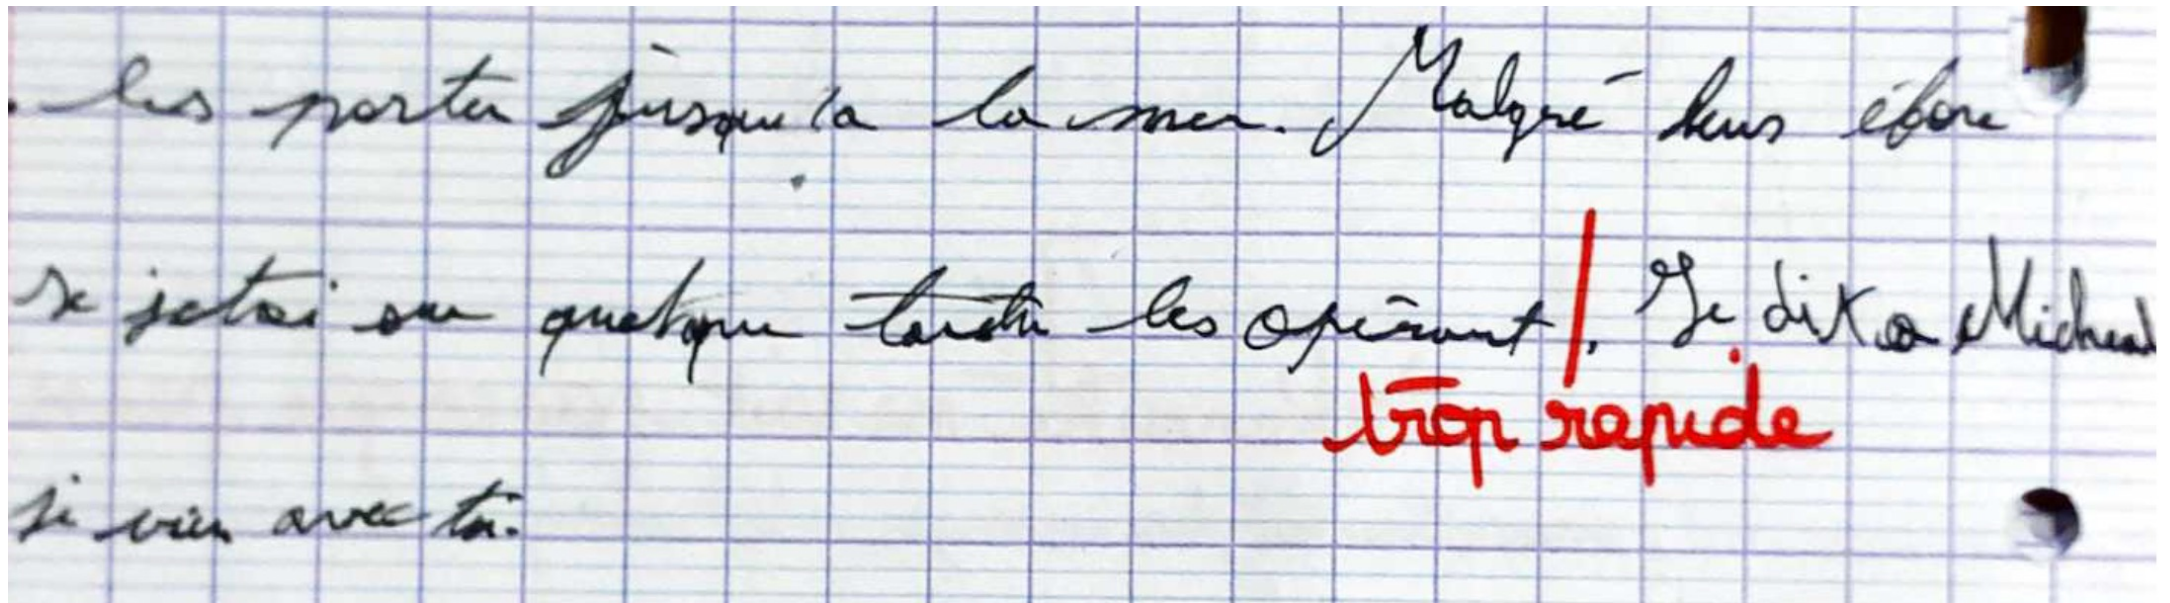 les porter jusqu'a la mer. Malgré leurs éfore
se jetai sur quelque tortu les opérant. Je dit a Micheal
trop rapide
je vien avec toi.